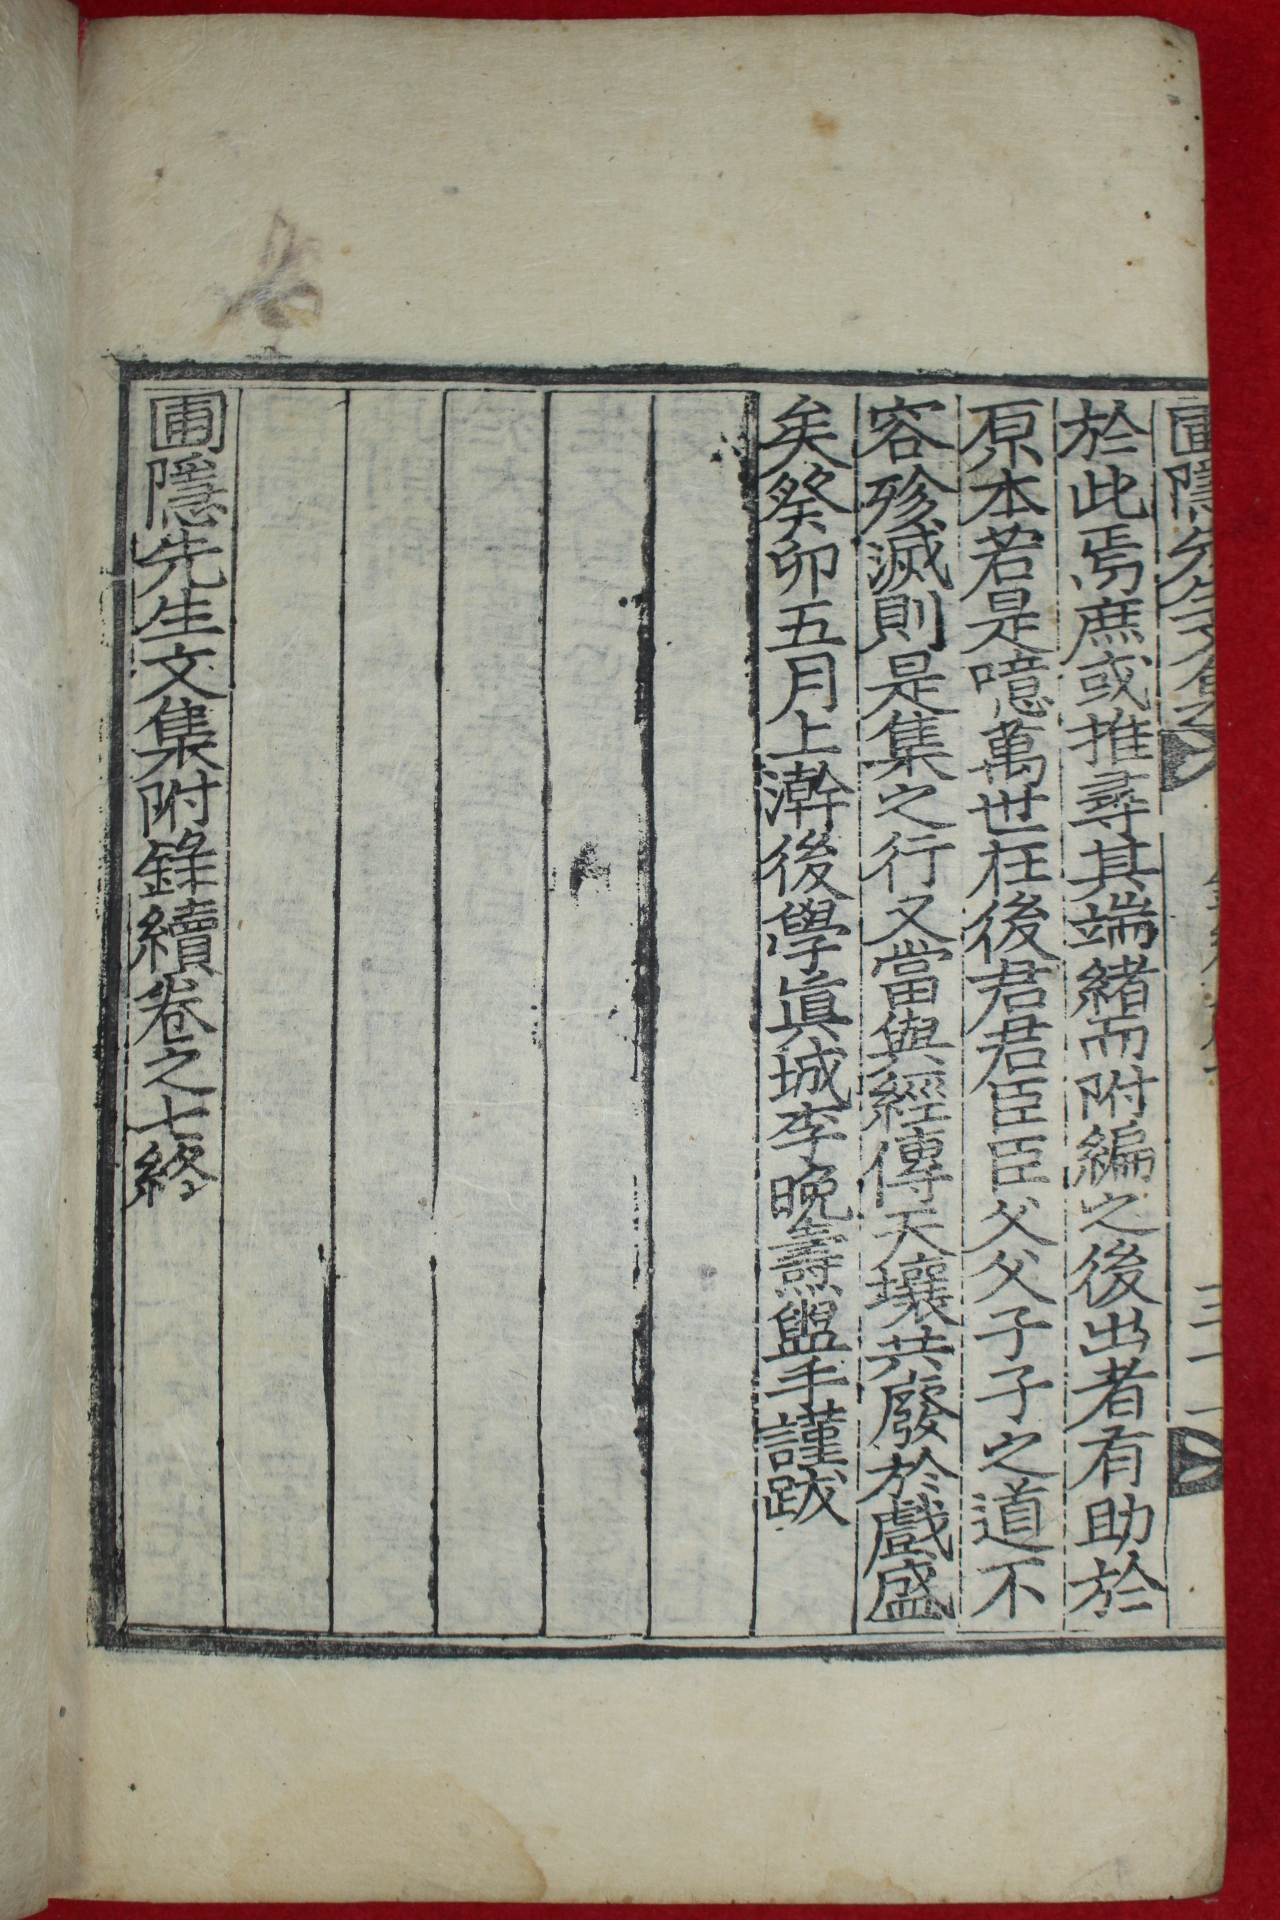 圃隱先生文集
三十一
於此焉庶或推尋其端緒而附編之後出者有助於
原本若是噫萬世在後君君臣臣父父子子之道不
容殄滅則是集之行又當與經傳天壤共廢於戲盛
矣癸卯五月上澣後學眞城李晚燾盥手謹跋
圃隱先生文集附錄續卷之七終